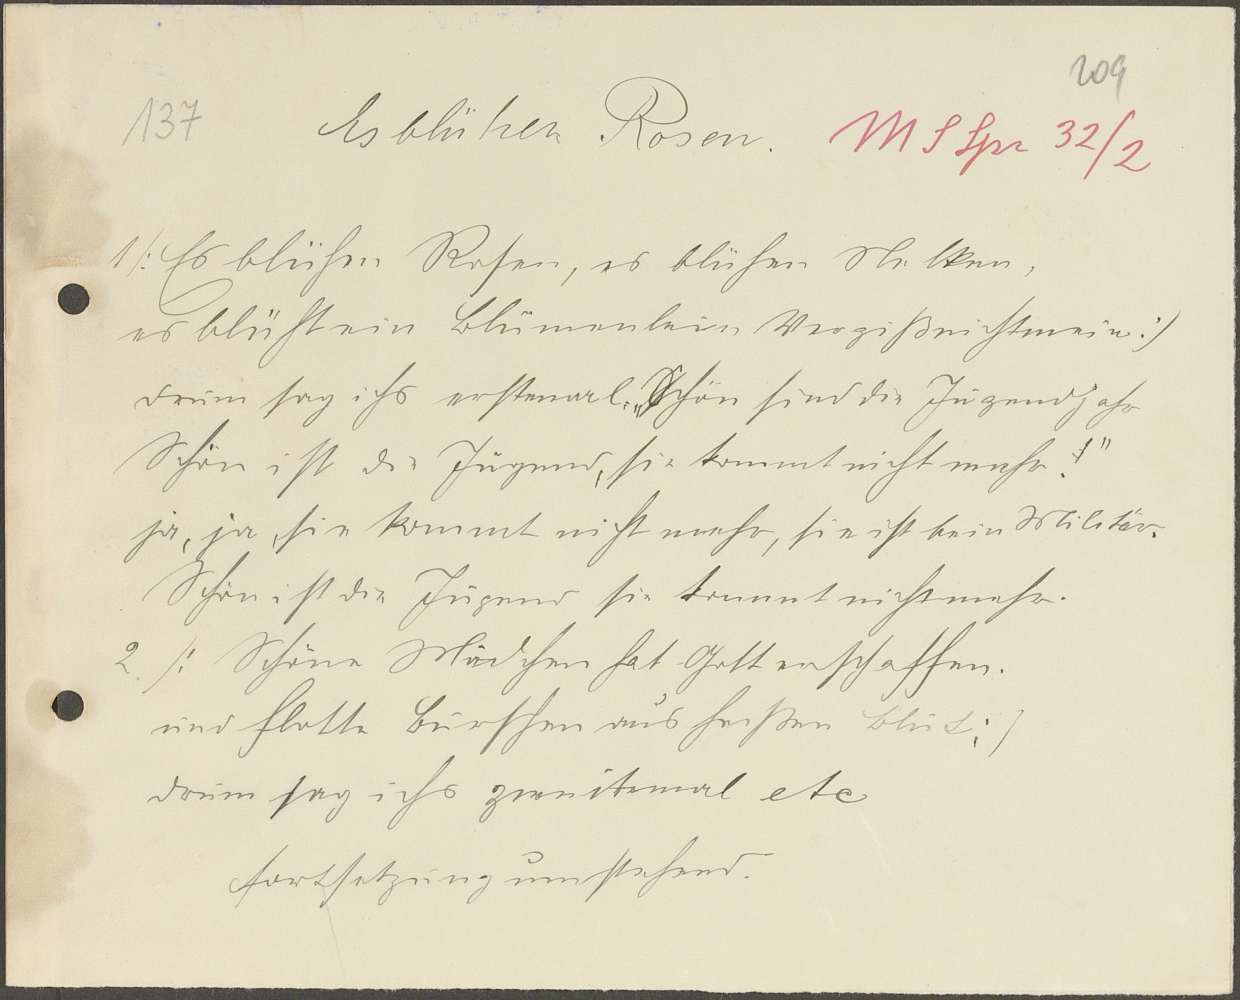 209
137 Es blühen Rosen. M S Spr 32/2
1 /: Es blühen Rosen, es blühen Nelken,
es blüht ein Blümenlein Vergißnichtmein :/
drum sag ichs erstemal: „Schön sind die Jugendjahr
Schön ist die Jugend, sie kommt nicht mehr!"
ja, ja, sie kommt nicht mehr, sie ist beim Militär.
Schön ist die Jugend sie kommt nicht mehr.
2. /: Schöne Mädchen hat Gott erschaffen.
und flotte Burschen aus heißen Blut :/
drum sag ichs zweitemal etc
Fortsetzung umstehend.